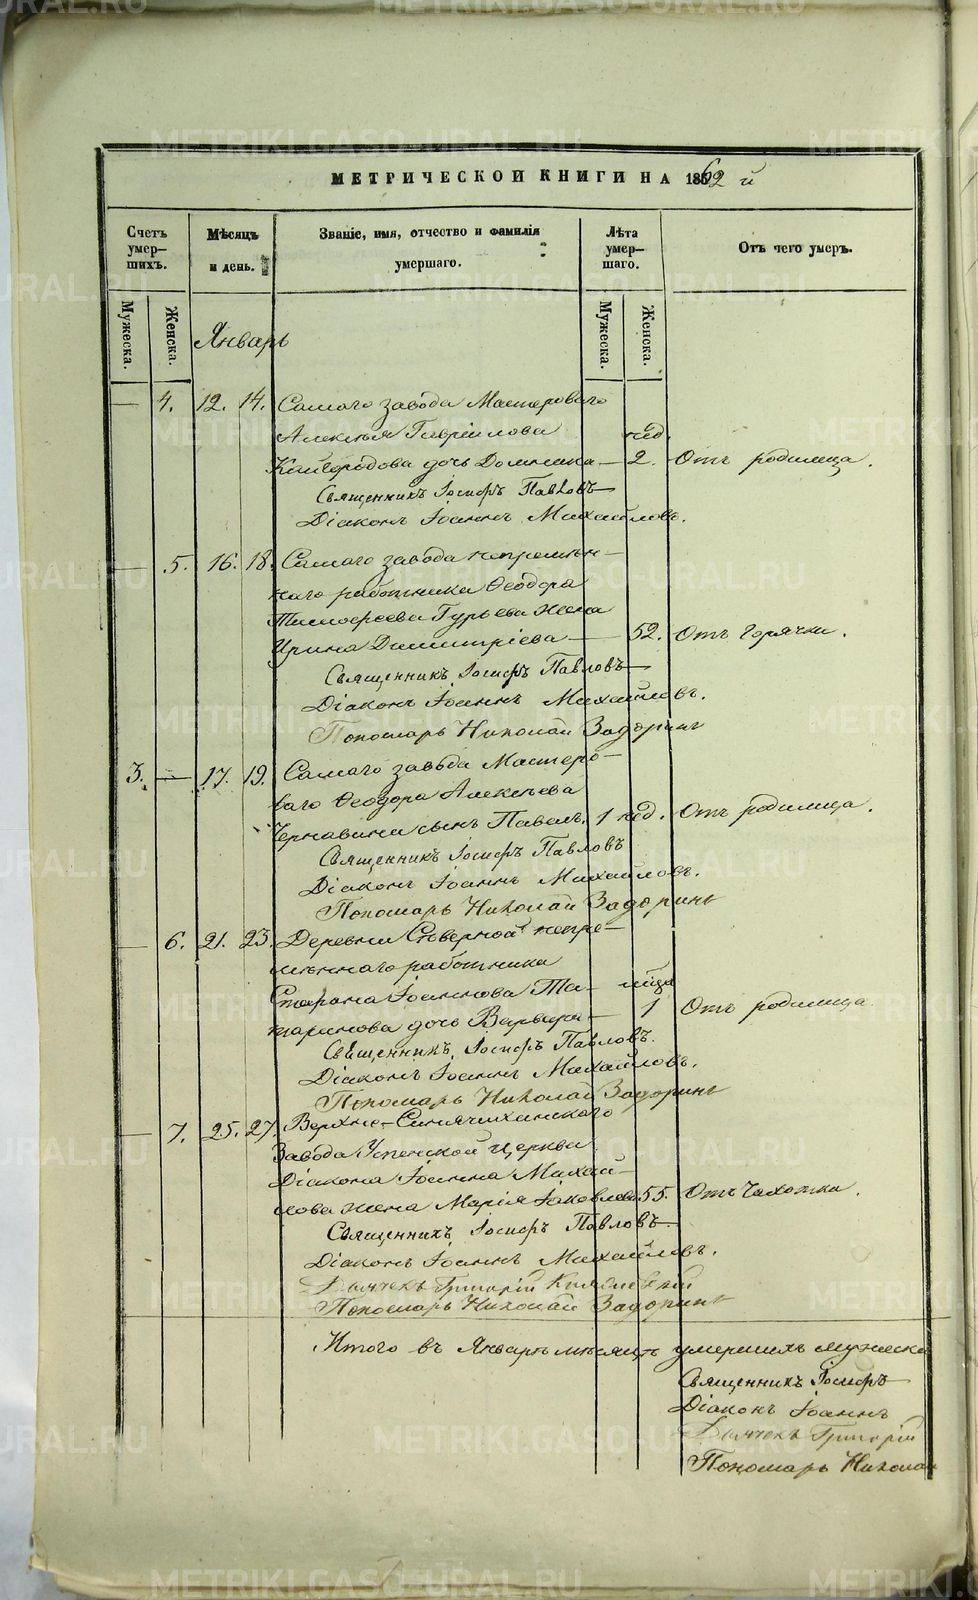 МЕТРИЧЕСКОЙ КНИГИ НА 1862 й
Счетъ умершихъ.
Мѣсяцъ и день.
Званіе, имя, отчество и фамилія умершаго.
Лѣта умершаго.
Отъ чего умеръ.
Мужеска.
Женска.
Мужеска.
Женска.
Январь
— 4. 12. 14. Самаго завода Мастероваго
Алексѣя Гавріилова нед.
Кайгородова дочь Домника — 2. Отъ родимца.
Священникъ Іосифъ Павловъ
Діаконъ Іоаннъ Михайловъ.
— 5. 16. 18. Самаго завода непремѣн-
наго работника Ѳеодора
Тимофеева Гурьева жена
Ирина Димитріева — 52. Отъ горячки.
Священникъ Іосифъ Павловъ
Діаконъ Іоаннъ Михайловъ.
Пономарь Николай Задоринъ
3. — 17. 19. Самаго завода Мастеро-
ваго Ѳеодора Алексѣева
Чернавина сынъ Павелъ. 1 нед. Отъ родимца.
Священникъ Іосифъ Павловъ
Діаконъ Іоаннъ Михайловъ.
Пономарь Николай Задоринъ
— 6. 21. 23. Деревни Сѣверной непре-
мѣннаго работника
Іоаннова Та-
таринова дочь Варвара — 1 Отъ родимца
Священникъ Іосифъ Павловъ.
Діаконъ Іоаннъ Михайловъ.
Пономарь Николай Задоринъ
— 7. 25. 27. Верхне-Синячихинскаго
Завода Успенской церкви
Діакона Іоанна Михай-
лова жена Марія Іаковлева 55. Отъ Чахотки.
Священникъ Іосифъ Павловъ
Діаконъ Іоаннъ Михайловъ.
Дьячекъ Григорій
Пономарь Николай Задоринъ
Итого въ Январѣ мѣсяцѣ умершихъ мужеска
Священникъ Іосифъ
Діаконъ Іоаннъ
Дьячекъ Григорій
Пономарь Николай
METRIKI.GASO-URAL.RU